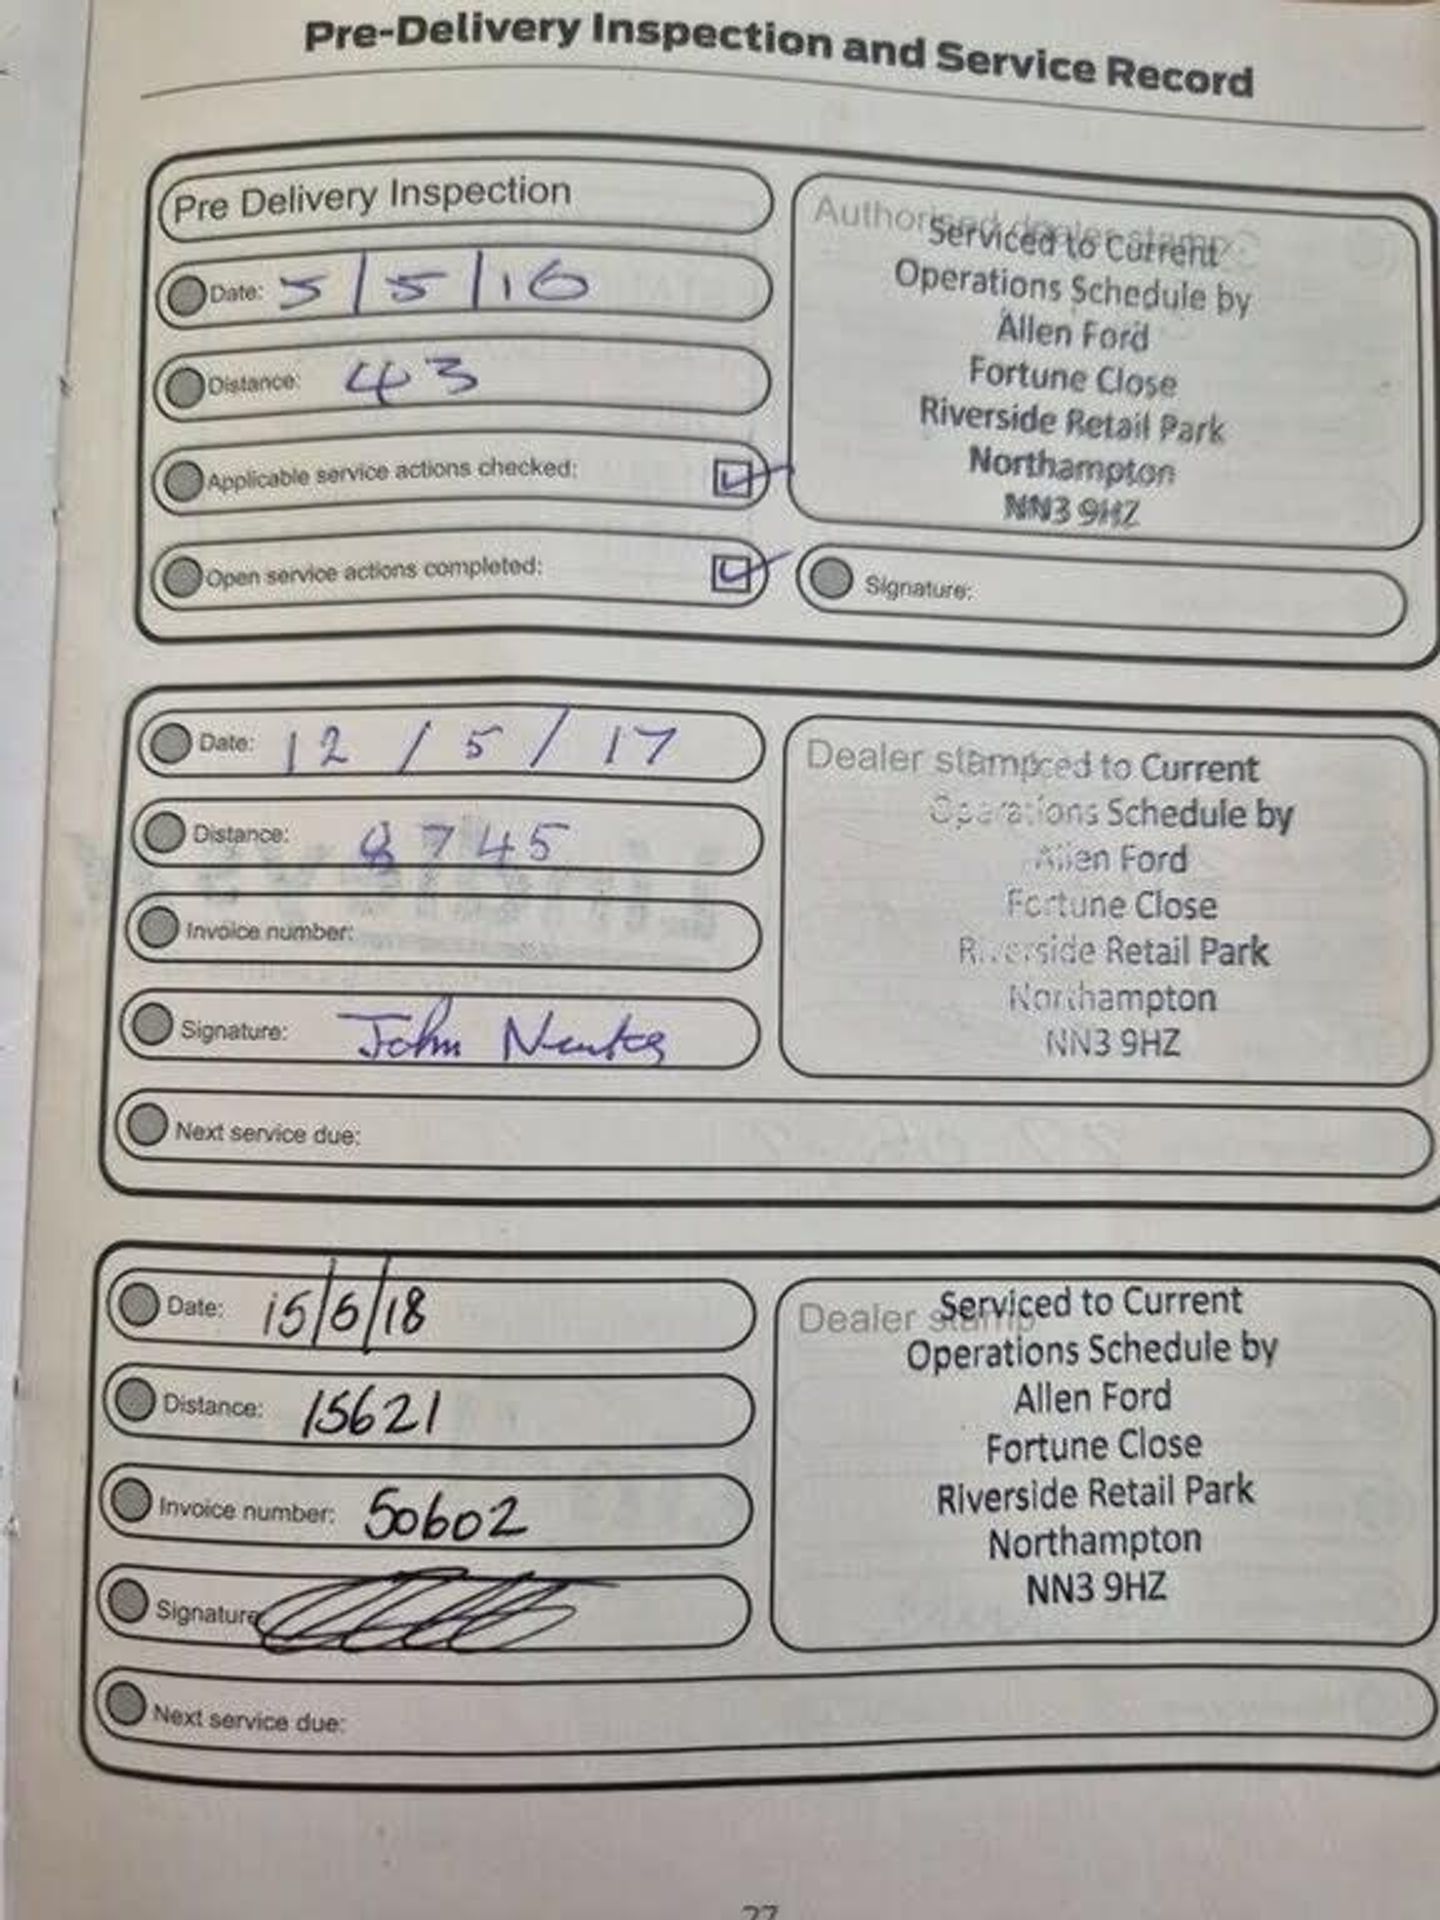 Pre-Delivery Inspection and Service Record
Pre Delivery Inspection
Date: 5/5/16
Distance: 43
Applicable service actions checked:
Open service actions completed:
Authorised dealer stamp
Serviced to Current
Operations Schedule by
Allen Ford
Fortune Close
Riverside Retail Park
Northampton
NN3 9HZ
Signature:
Date: 12/5/17
Distance: 8745
Invoice number:
Signature: John
Dealer stamp
ced to Current
Operations Schedule by
Allen Ford
Fortune Close
Riverside Retail Park
Northampton
NN3 9HZ
Next service due:
Date: 15/5/18
Distance: 15621
Invoice number: 50602
Signature
Dealer stamp
Serviced to Current
Operations Schedule by
Allen Ford
Fortune Close
Riverside Retail Park
Northampton
NN3 9HZ
Next service due: